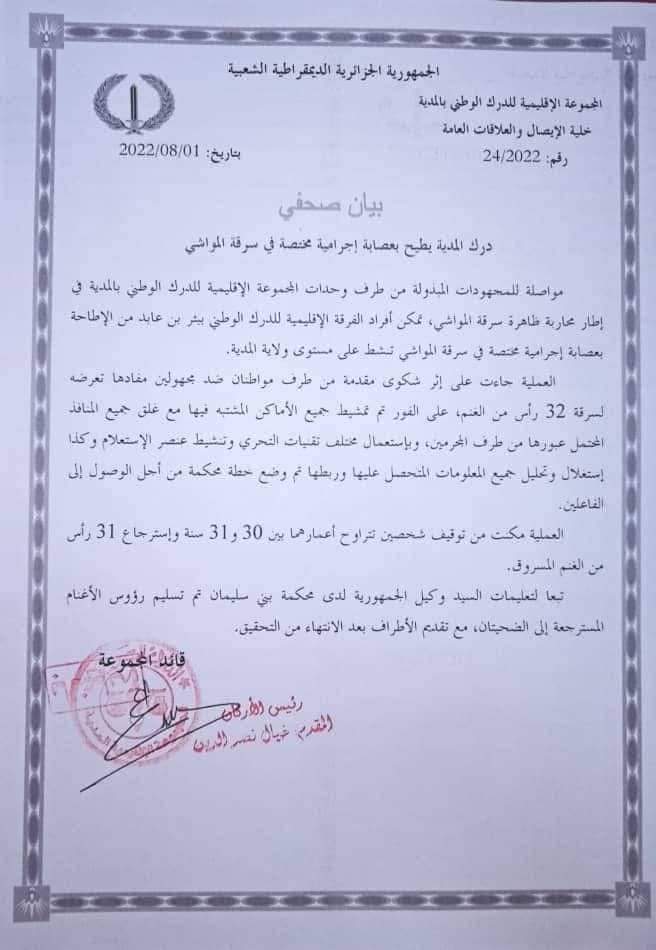 الجمهورية الجزائرية الديمقراطية الشعبية
المجموعة الإقليمية للدرك الوطني بالمدية
خلية الإيصال والعلاقات العامة
رقم: 24/2022
بتاريخ: 2022/08/01
بيان صحفي
درك المدية يطيح بعصابة إجرامية مختصة في سرقة المواشي
مواصلة للمجهودات المبذولة من طرف وحدات المجموعة الإقليمية للدرك الوطني بالمدية في
إطار محاربة ظاهرة سرقة المواشي، تمكن أفراد الفرقة الإقليمية للدرك الوطني ببئر بن عابد من الإطاحة
بعصابة إجرامية مختصة في سرقة المواشي تنشط على مستوى ولاية المدية.
العملية جاءت على إثر شكوى مقدمة من طرف مواطنان ضد مجهولين مفادها تعرضه
لسرقة 32 رأس من الغنم، على الفور تم تمشيط جميع الأماكن المشتبه فيها مع غلق جميع المنافذ
المحتمل عبورها من طرف المجرمين، وبإستعمال مختلف تقنيات التحري وتنشيط عنصر الإستعلام وكذا
إستغلال وتحليل جميع المعلومات المتحصل عليها وربطها تم وضع خطة محكمة من أجل الوصول إلى
الفاعلين.
العملية مكنت من توقيف شخصين تتراوح أعمارهما بين 30 و31 سنة وإسترجاع 31 رأس
من الغنم المسروق.
تبعا لتعليمات السيد وكيل الجمهورية لدى محكمة بني سليمان تم تسليم رؤوس الأغنام
المسترجعة إلى الضحيتان، مع تقديم الأطراف بعد الانتهاء من التحقيق.
قائد المجموعة
رئيس الأركان
المقدم خيال نصر الدين